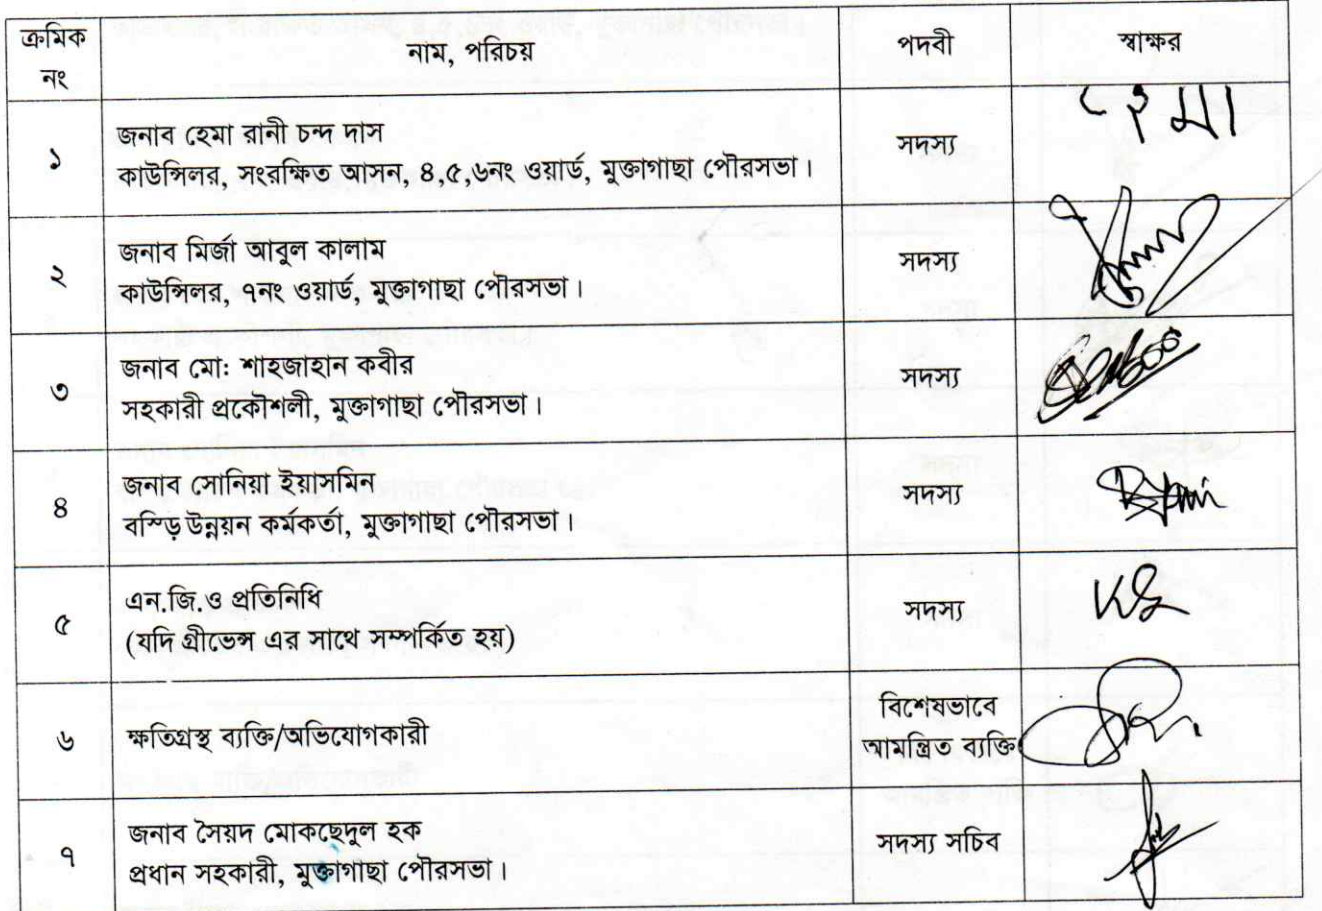 ক্রমিক নং
নাম, পরিচয়
পদবী
স্বাক্ষর
১
জনাব হেমা রানী চন্দ দাস
কাউন্সিলর, সংরক্ষিত আসন, ৪,৫,৬নং ওয়ার্ড, মুক্তাগাছা পৌরসভা।
সদস্য
হেমা
২
জনাব মির্জা আবুল কালাম
কাউন্সিলর, ৭নং ওয়ার্ড, মুক্তাগাছা পৌরসভা।
সদস্য
৩
জনাব মো: শাহজাহান কবীর
সহকারী প্রকৌশলী, মুক্তাগাছা পৌরসভা।
সদস্য
৪
জনাব সোনিয়া ইয়াসমিন
বস্ড়ি উন্নয়ন কর্মকর্তা, মুক্তাগাছা পৌরসভা।
সদস্য
৫
এন.জি.ও প্রতিনিধি
(যদি গ্রীভেন্স এর সাথে সম্পর্কিত হয়)
সদস্য
৬
ক্ষতিগ্রস্থ ব্যক্তি/অভিযোগকারী
বিশেষভাবে
আমন্ত্রিত ব্যক্তি
৭
জনাব সৈয়দ মোকছেদুল হক
প্রধান সহকারী, মুক্তাগাছা পৌরসভা।
সদস্য সচিব